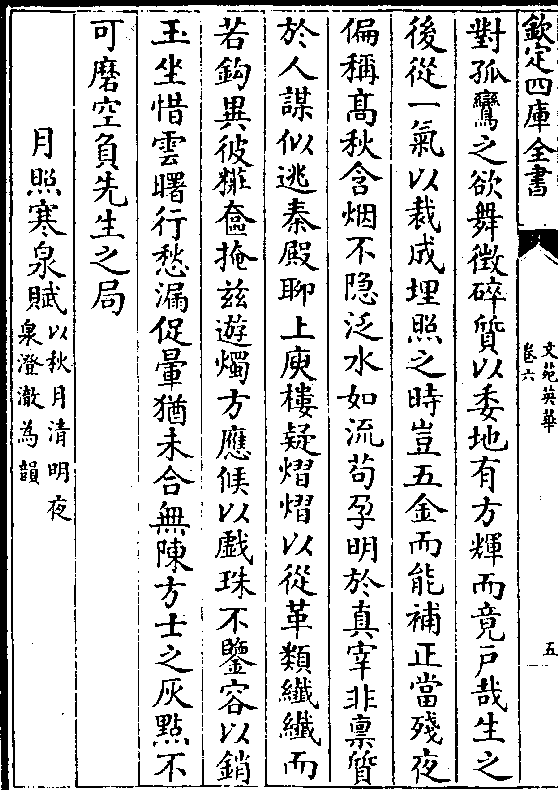 欽定四庫全書
文苑英華
卷六
五
對孤鸞之欲舞徴碎質以委地有方輝而竟戸哉生之
後從一氣以裁成埋照之時豈五金而能補正當殘夜
偏稱髙秋含烟不隐泛水如流苟孕明於真宰非禀質
於人謀似逃秦殿聊上庾樓疑熠熠以從革類纎纎而
若鈎異彼粧奩掩兹遊燭方應候以戲珠不鑒容以銷
玉坐惜雲曙行愁漏促暈猶未合無陳方士之灰㸃不
可磨空負先生之局
月照寒泉賦以秋月清明夜
泉澄澈為韻